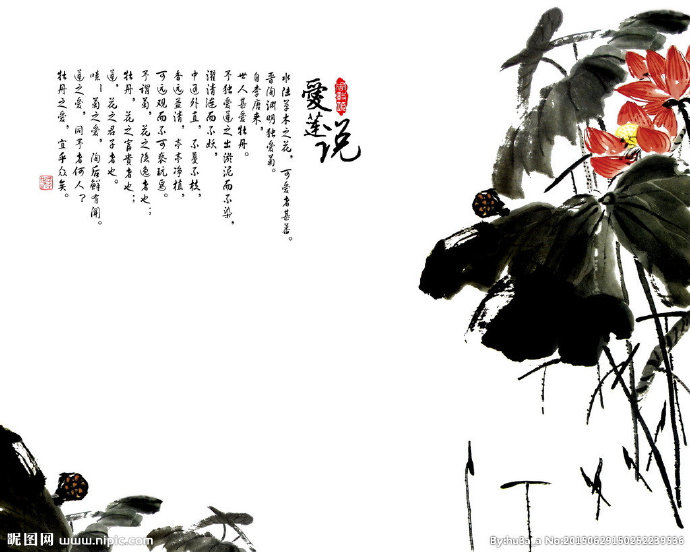 愛莲说
水陆草木之花,可爱者甚蕃。
晋陶渊明独爱菊。
自李唐来,
世人甚爱牡丹。
予独爱莲之出淤泥而不染,
濯清涟而不妖,
中通外直,不蔓不枝,
香远益清,亭亭净植,
可远观而不可亵玩焉。
予谓菊,花之隐逸者也;
牡丹,花之富贵者也;
莲,花之君子者也。
噫!菊之爱,陶后鲜有闻。
莲之爱,同予者何人?
牡丹之爱,宜乎众矣。
昵图网 www.nipic.com
No:20150629150252239936